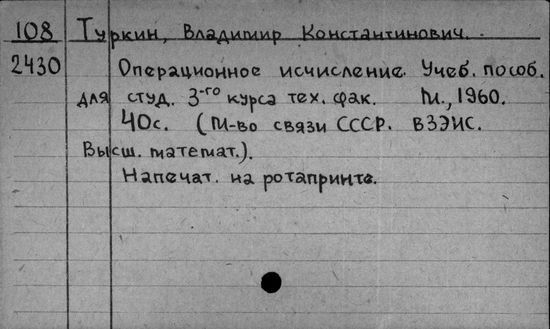 108 Туркин, Владимир Константинович.
2430 Операционное исчисление. Учеб. пособ.
для студ. 3-го курса тех. фак. М., 1960.
40с. (М-во связи СССР. ВЗЭИС.
Высш. математ.).
Напечат. на ротапринте.